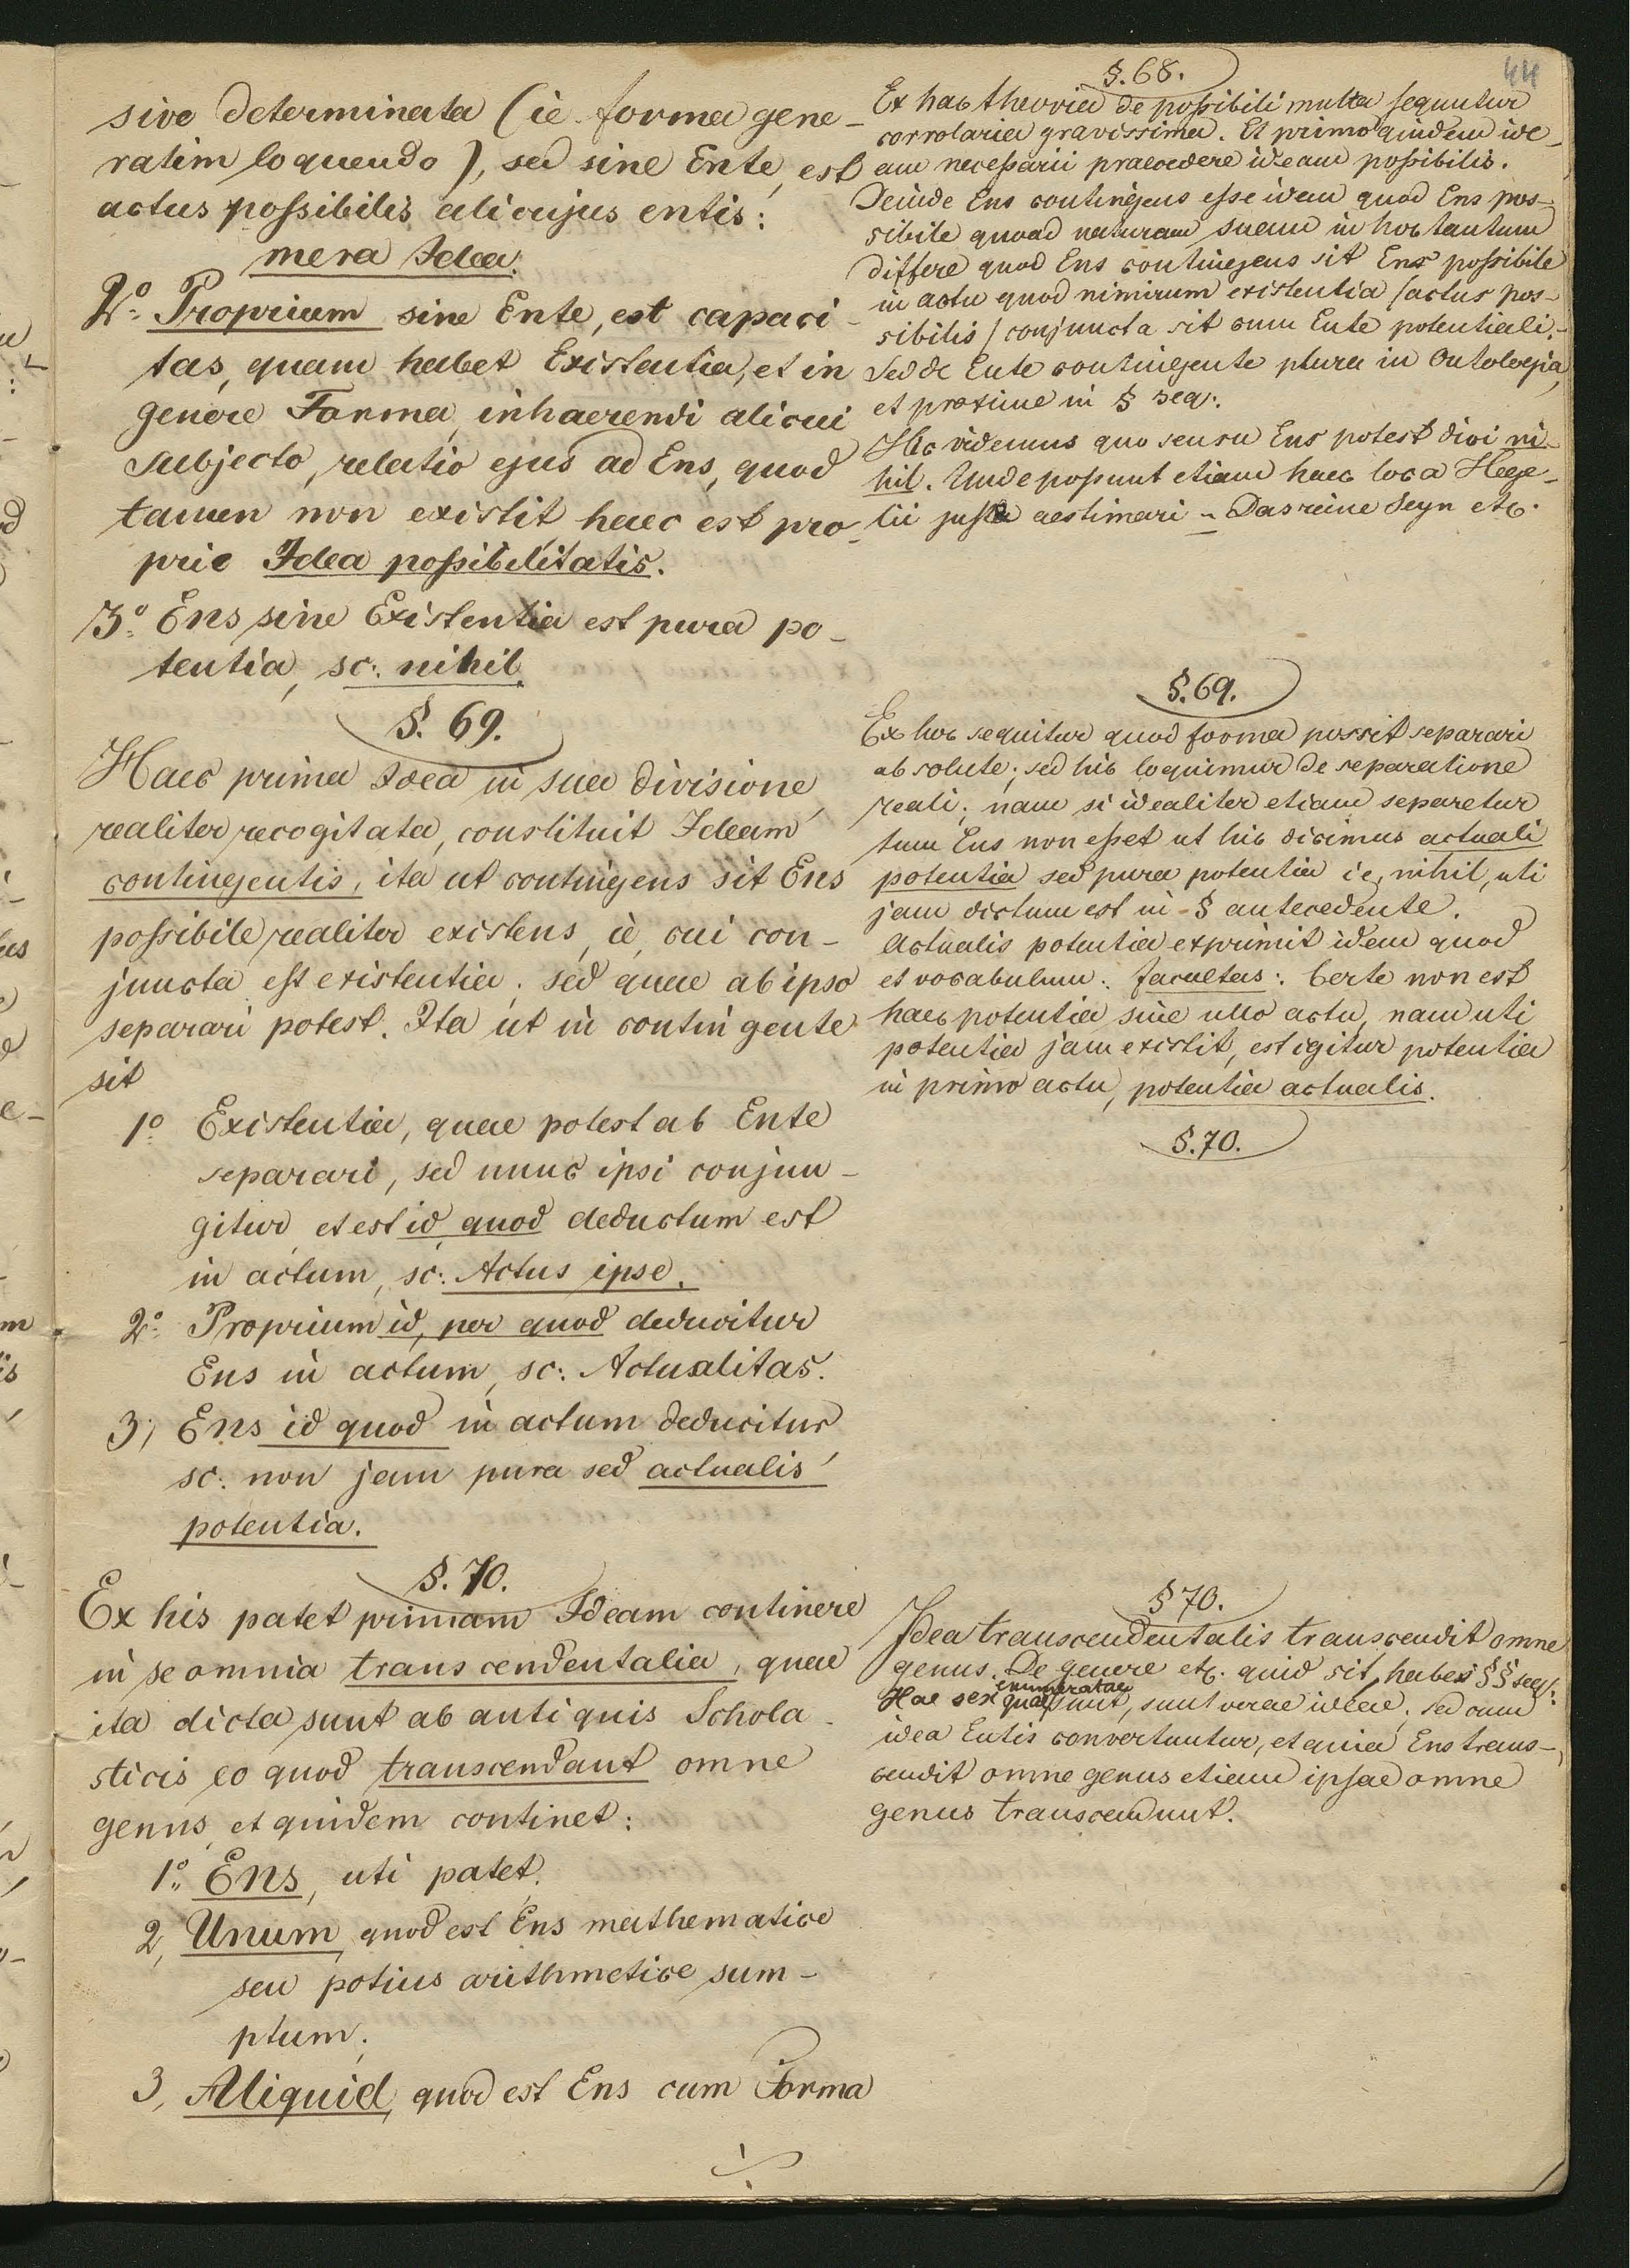 sive determinata (ie forma gene-
ratim loquendo), sed sine Ente, est
actus possibilis alicujus entis:
mera Idea.
2º Proprium sine Ente, est capaci-
tas, quam habet Existentia, et in
genere Forma, inhaerendi alicui
subjecto, relatio ejus ad Ens, quod
tamen non existit, haec est pro-
prie Idea possibilitatis.
3º Ens sine Existentia est pura po-
tentia, sc: nihil.
§. 69.
Haec prima Idea in sua divisione,
realiter recogitata, constituit Ideam
contingentis, ita ut contingens sit Ens
possibile realiter existens, ie, cui con-
juncta est existentia; sed quae ab ipso
separari potest. Ita ut in contingente
sit
1º Existentia, quae potest ab Ente
separari, sed nunc ipsi conjun-
gitur, et est id, quod deductum est
in actum, sc: Actus ipse.
2º Proprium id, per quod deducitur
Ens in actum, sc: Actualitas.
3; Ens id quod in actum deducitur
sc: non jam pura sed actualis
potentia.
§. 70.
Ex his patet primam Ideam continere
in se omnia transcendentalia, quae
ita dicta sunt ab antiquis Schola-
sticis eo quod transcendant omne
genus, et quidem continet:
1º Ens, uti patet.
2, Unum, quod est Ens mathematice
seu potius arithmetice sum-
ptum;
3, Aliquid, quod est Ens cum Forma
44
§. 68.
Ex hac theoria de possibili multa sequntur
corrolaria gravissima. Et primo quidem ide-
am necessarii praecedere ideam possibilis.
Deinde Ens contingens esse idem quod Ens pos-
sibile quoad naturam suam in hoc tantum
differe quod Ens contingens sit Ens possibile
in actu quod nimirum existentia (actus pos-
sibilis) conjuncta sit cum Ente potentiali.-
Sed de Ente contingente plura in Ontologia,
et proxime in § seq:.
Hic videmus quo sensu Ens potest dici ni-
hil. Unde possunt etiam haec loca Hege-
lii juste aestimari - Das reine Seyn etc.
§. 69.
Ex hoc sequitur quod forma possit separari
absolute; sed hic loquimur de separatione
reali; nam si idealiter etiam separetur
tum Ens non esset ut hic dicimus actuali
potentia sed pura potentia ie, nihil, uti
jam dictum est in § antecedente.
Actualis potentia exprimit idem quod
et vocabulum: facultas: Certe non est
haec potentia sine ullo actu, nam uti
potentia jam existit, est igitur potentia
in primo actu, potentia actualis.
§. 70.
§ 70.
Idea transcendentalis transcendit omne
genus. De genere etc. quid sit, habes §§ seq:
enumeratae
Hae sex quae sunt, sunt verae ideae; sed cum
idea Entis convertuntur, et quia Ens trans-
cendit omne genus etiam ipsae omne
genus transcendunt.